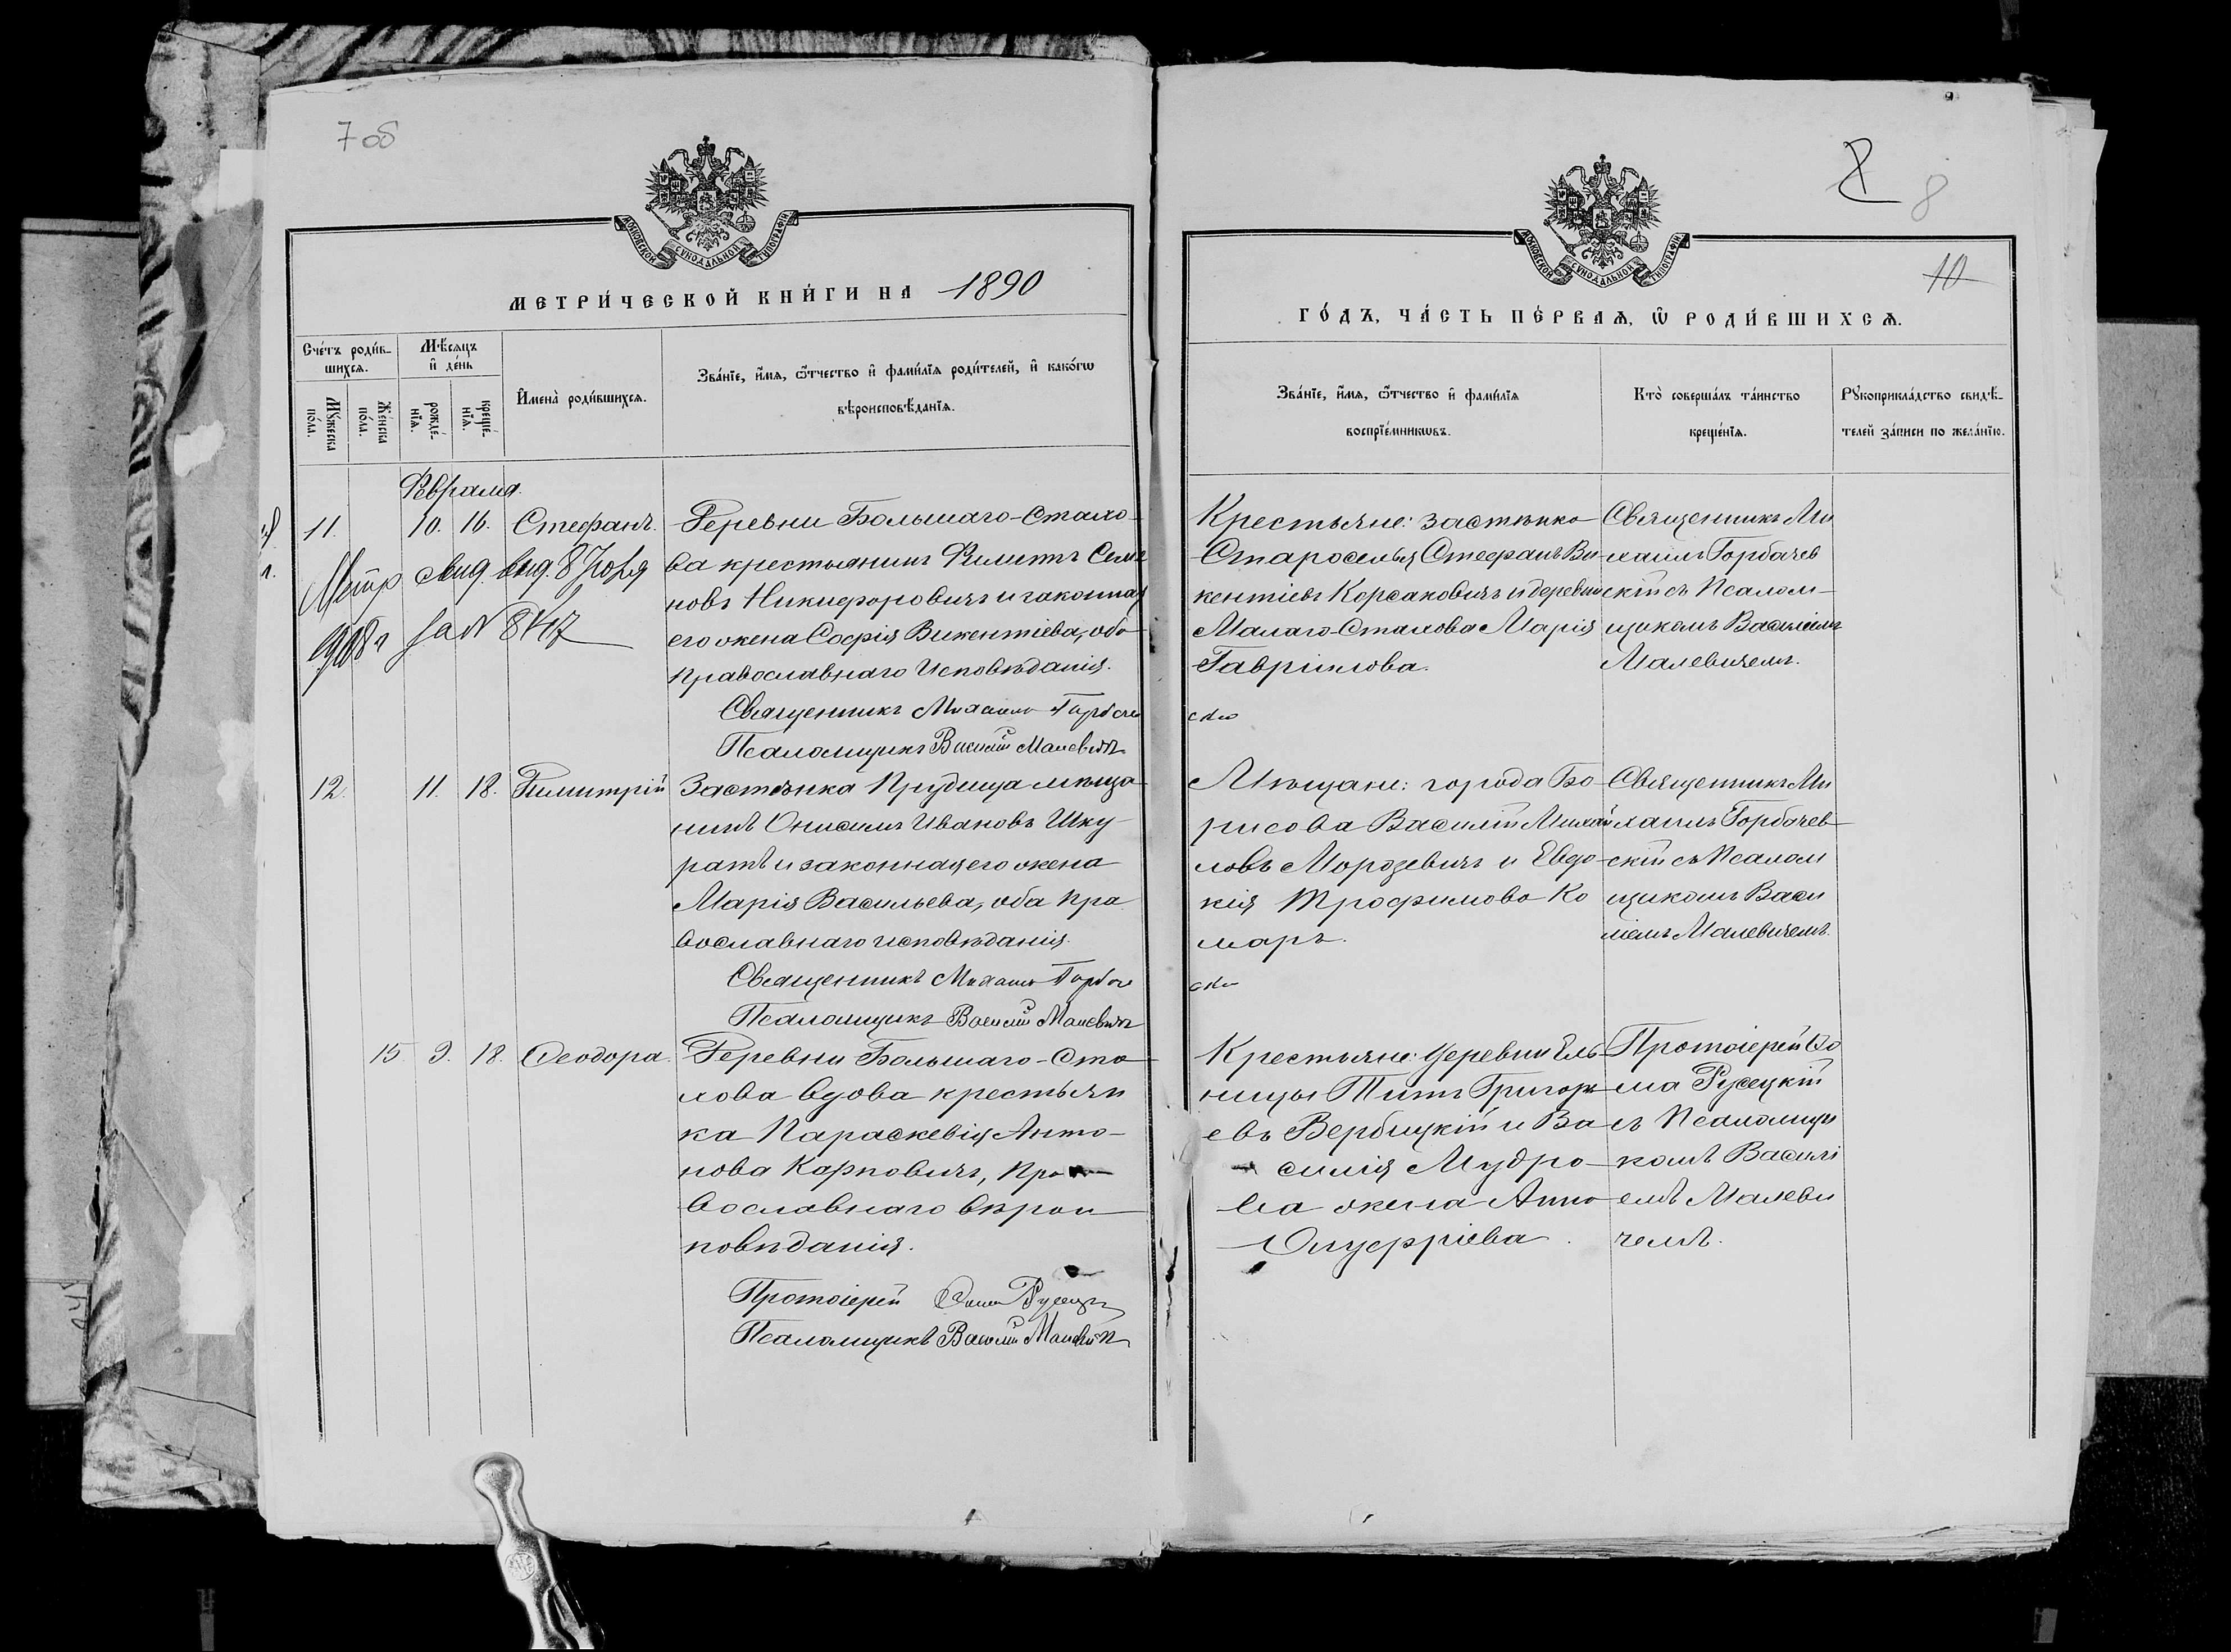 7 об
МОСКОВСКОЙ СѴНОДАЛЬНОЙ ТИПОГРАФІИ
МЕТРИ́ЧЕСКОЙ КНИ́ГИ НА 1890
Сче́тъ роди́в-
шихсѧ.
Мꙋ́жеска
по́ла.
Же́нска
по́ла.
Мѣ́сѧцъ
и҆ де́нь
рожде́-
нїѧ.
креще́-
нїѧ.
И҆мена̀ роди́вшихсѧ.
Зва́нїе, и҆́мѧ, ѻ҆́тчество и҆ фами́лїѧ роди́телей, и҆ како́гѡ
вѣроисповѣ́данїѧ.
Февраля.
11. 10. 16. Стефанъ.
Деревни Большаго-Стахо-
ва крестьянинъ Филиппъ Семе
новъ Никифоровичъ и законная
его жена София Викентіева, оба
Православнаго Исповѣданія.
Священникъ Михаилъ Горбачев
Псаломщикъ Василій Малевичъ
Метр. выд. 8
1908 г за № 8417
12. 11. 18. Димитрій
Застѣнка Прудища мѣща-
нинъ Онисимъ Ивановъ Шку-
ратъ и законная его жена
Марія Васильева, оба Пра
вославнаго исповѣданія.
Священникъ Михаилъ Горбаче
Псаломщикъ Василій Малевичъ
15. 9. 18. Ѳеодора.
Деревни Большаго-Ста-
хова вдова крестьян
ка Параскевія Анто-
нова Карповичъ, Пра-
вославнаго вѣрои
повѣданія.
Протоіерей Ѳома Русецкій
Псаломщикъ Василій Малевичъ
8
10
МОСКОВСКОЙ СѴНОДАЛЬНОЙ ТИПОГРАФІИ
ГО́ДЪ, ЧА́СТЬ ПЕ́РВАѦ, Ѽ РОДИ́ВШИХСѦ.
Зва́нїе, и҆́мѧ, ѻ҆́тчество и҆ фами́лїѧ
воспрїе́мникѡвъ.
Кто̀ соверша́лъ та́инство
креще́нїѧ.
Рꙋкоприкла́дство свидѣ́-
телей за́писи по жела́нїю.
Крестьяне: застѣнка
Староселья Стефанъ Ви-
кентіевъ Корсаковичъ и деревни
Малаго-Стахова Марія
Гавріилова.
ский
Священникъ Ми
хаилъ Горбачев
скій съ Псалом-
щикомъ Василіемъ
Малевичемъ.
Мѣщане: города Бо-
рисова Василій Михай
ловъ Морозевичъ и Евдо-
кія Трофимова Ко
маръ.
ский
Священникъ Ми
хаилъ Горбачев-
скій съ Псалом
щикомъ Васи
ліемъ Малевичемъ.
Крестьяне: деревни Ель-
ницы Титъ Григорь-
евъ Вербицкій и Ва
силія Мудро-
ва жена Анна
Онуфріева.
Протоіерей Ѳо
ма Русецкій
съ Псаломщи
комъ Василі
емъ Малеви
чемъ.